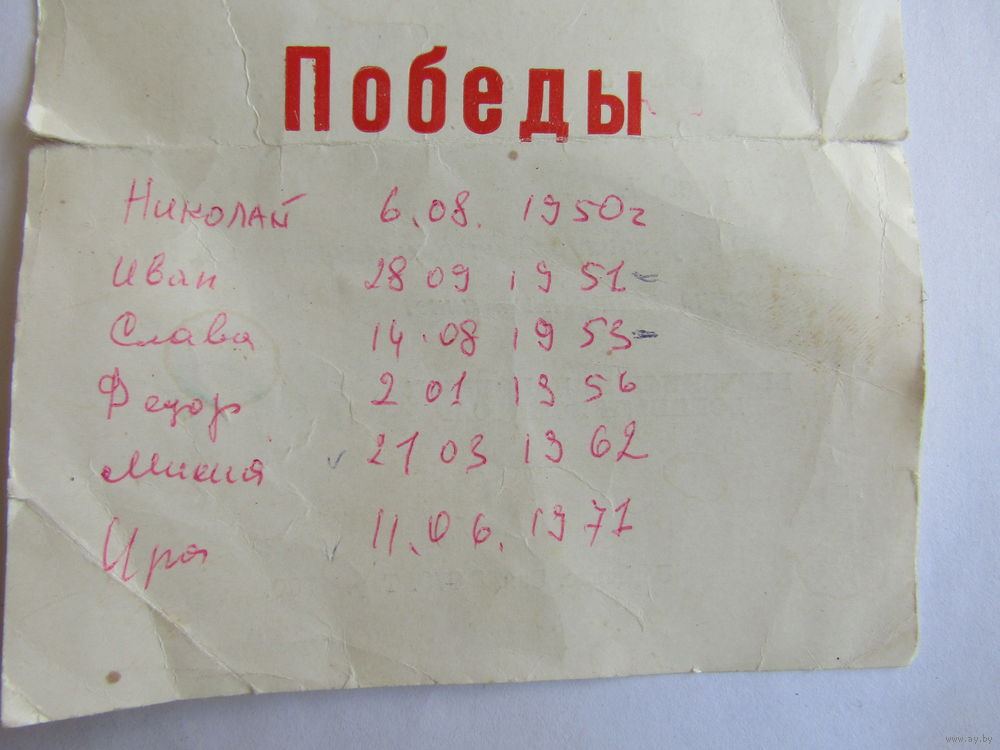 Победы
Николай 6.08. 1950г
Иван 28 09 1951
Слава 14.08 1953
Федор 2 01 1956
Миша 21 03 1962
Ира 11.06. 1971
www.ay.by